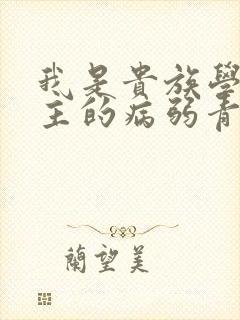 我是貴族學
主的病弱青
蘭望美